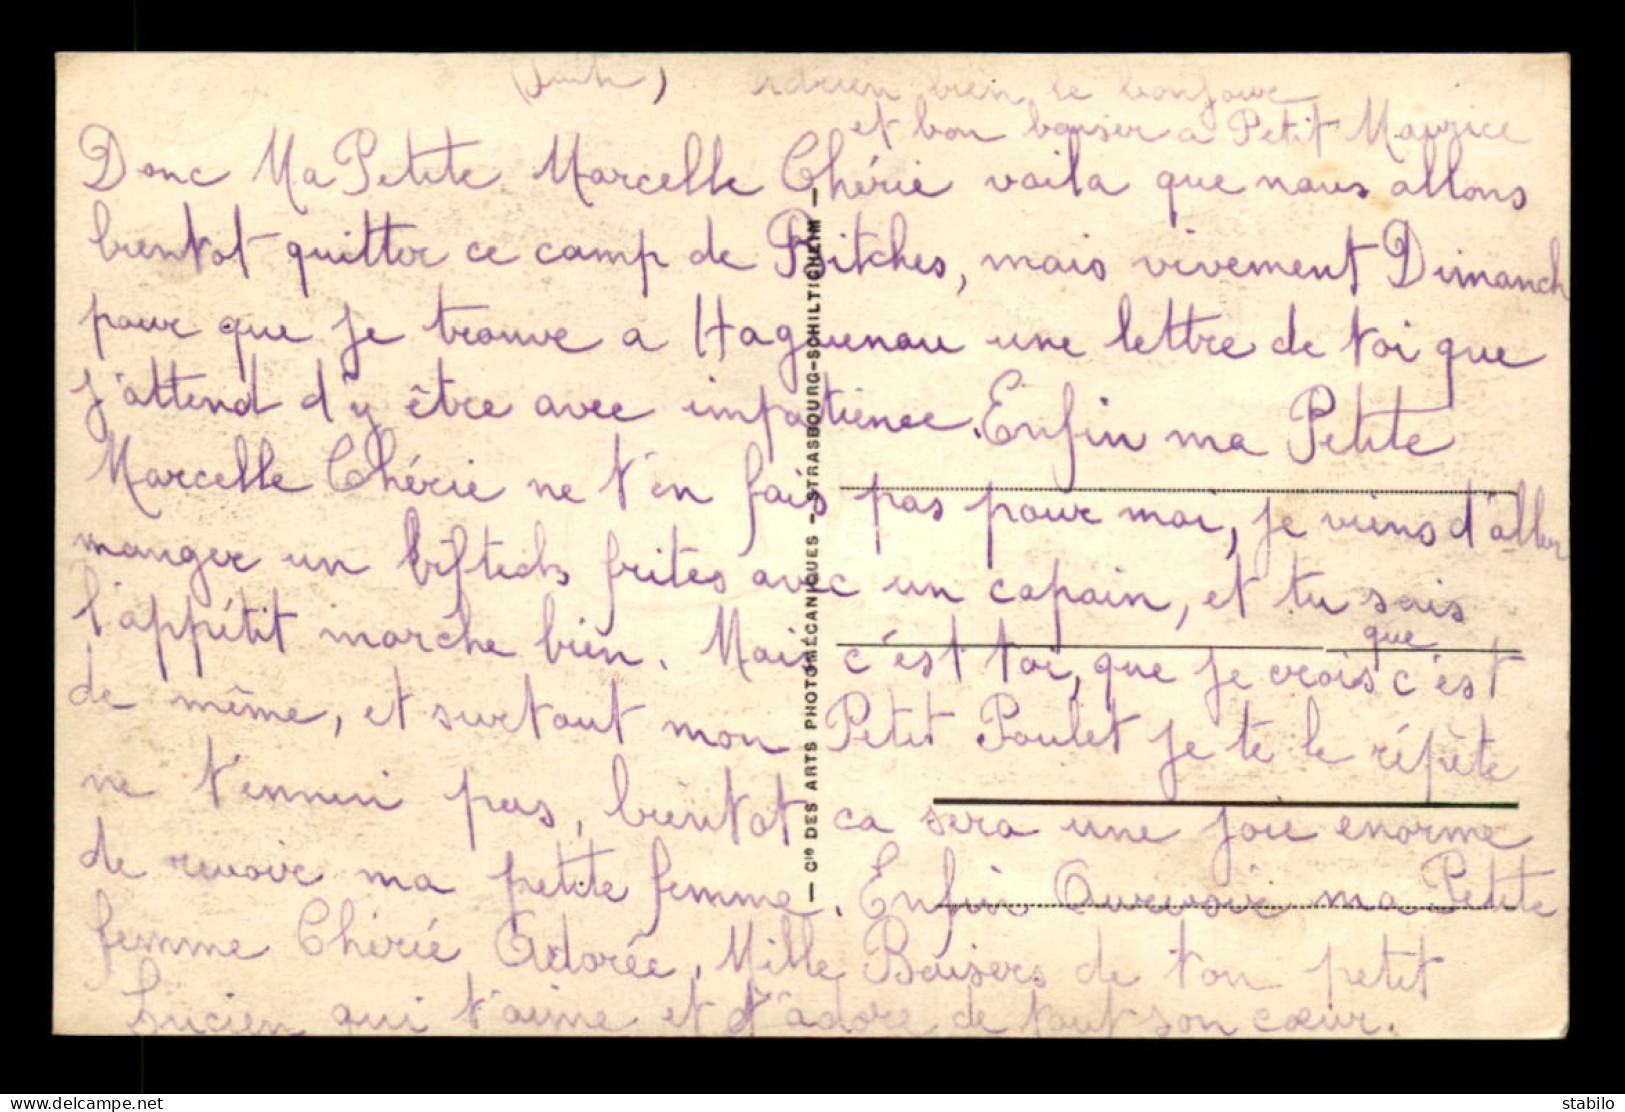 (Suite) Adrien bien le bonjour
et bon baiser a Petit Maurice
Donc Ma Petite Marcelle Chérie voila que nous allons
bientot quitter ce camp de Bitches, mais vivement Dimanch
pour que je trouve a Haguenau une lettre de toi que
j'attend d'y être avec impatience. Enfin ma Petite
Marcelle Chérie ne t'en fais pas pour moi, je viens d'aller
manger un biftecks frites avec un copain, et tu sais
l'appétit marche bien. Mais c'est toi, que je crois que c'est
de même, et surtout mon Petit Poulet je te le répète
ne t'ennui pas, bientot ca sera une joie enorme
de revoir ma petite femme. Enfin Aurevoir ma Petite
femme Chérie Adorée, Mille Baisers de ton petit
Lucien qui t'aime et t'adore de tout son cœur.
— Cie DES ARTS PHOTOMÉCANIQUES - STRASBOURG-SCHILTIGHEIM —
www.delcampe.net
stabilo